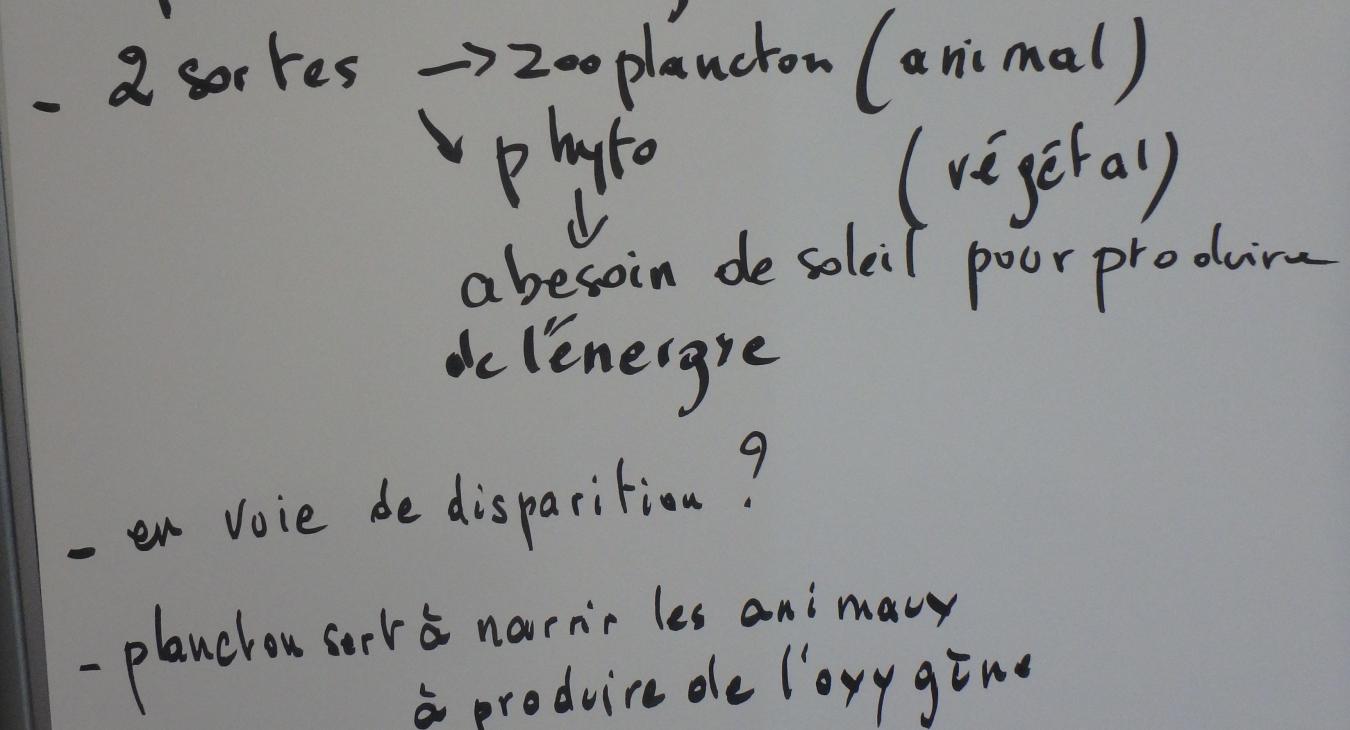 - 2 sortes → zooplancton (animal)
↘ phyto (végétal)
↓
a besoin de soleil pour produire
de l'énergie
- en voie de disparition ?
- plancton sert à nourrir les animaux
à produire de l'oxygène